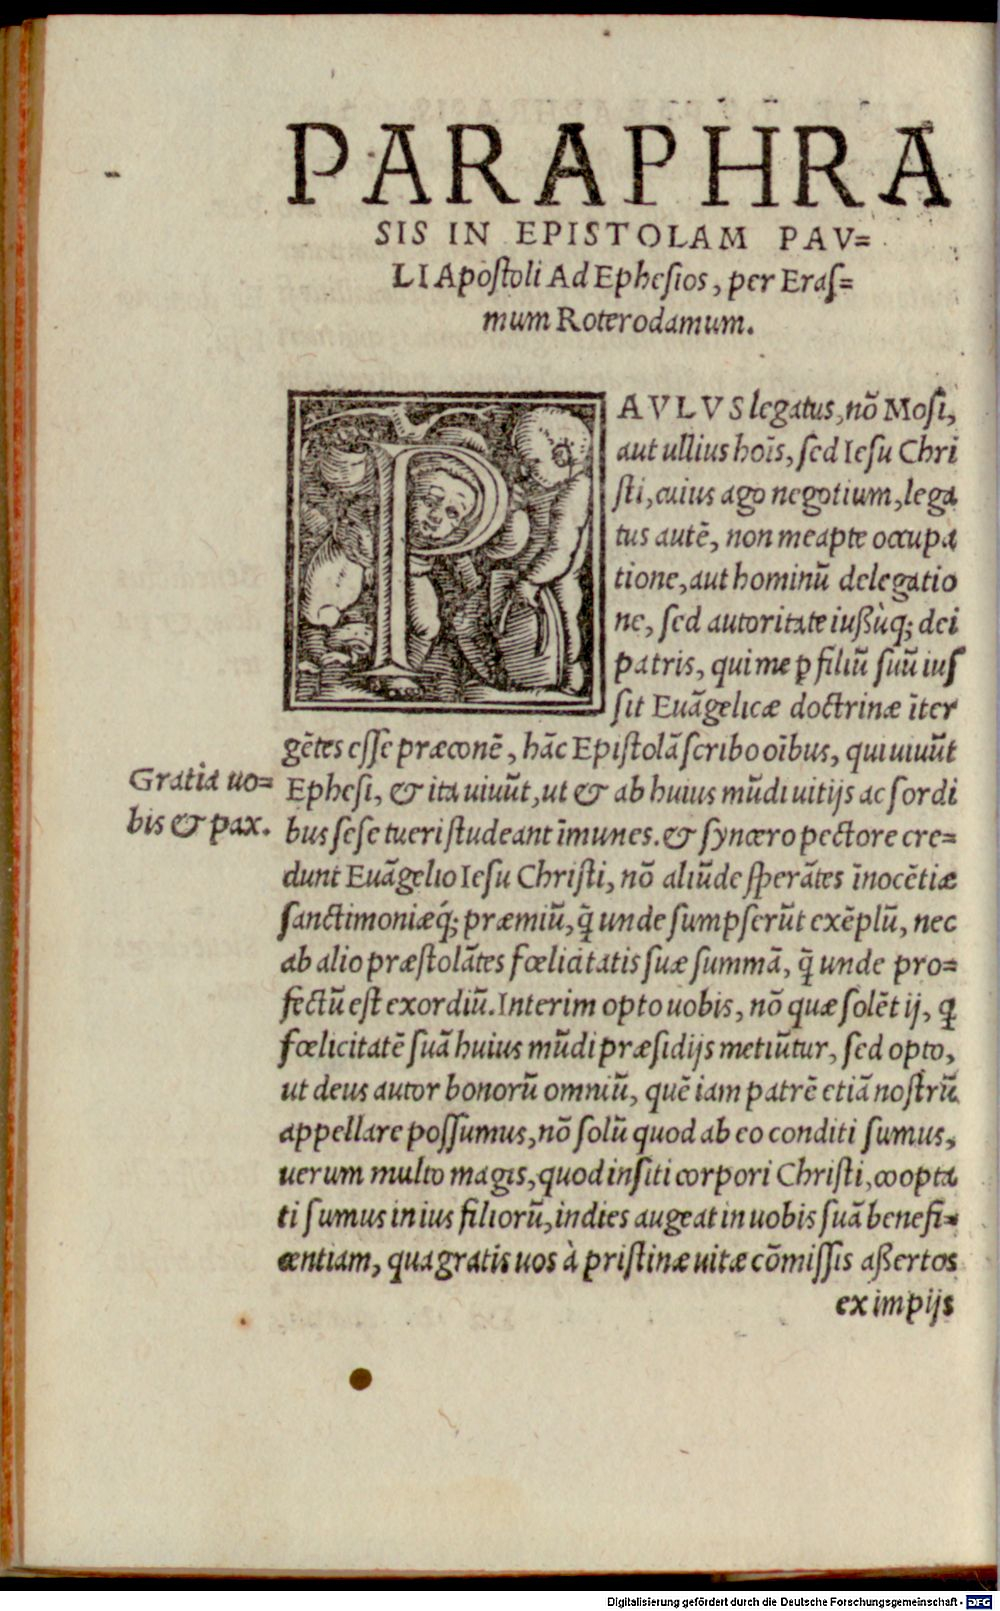 PARAPHRA
SIS IN EPISTOLAM PAV=
LI Apostoli Ad Ephesios, per Eras=
mum Roterodamum.
PAVLVS legatus, nõ Mosi,
aut ullius hoĩs, sed Iesu Chri
sti, cuius ago negotium, lega
tus autẽ, non meapte occupa
tione, aut hominũ delegatio
ne, sed autoritate iußùq; dei
patris, qui me ꝑ filiũ suũ ius
sit Euãgelicæ doctrinæ ĩter
gẽtes esse præconẽ, hãc Epistolã scribo oĩbus, qui uiuũt
Gratia uo=
Ephesi, & ita uiuũt, ut & ab huius mũdi uitijs ac sordi
bis & pax.
bus sese tueri studeant ĩmunes. & syncero pectore cre=
dunt Euãgelio Iesu Christi, nõ aliũde sperãtes ĩnocẽtiæ
sanctimoniæq́; præmiũ, q̃ unde sumpserũt exẽplũ, nec
ab alio præstolãtes fœlicitatis suæ summã, q̃ unde pro=
fectũ est exordiũ. Interim opto uobis, nõ quæ solẽt ij, ꝗ
fœlicitatẽ suã huius mũdi præsidijs metiũtur, sed opto,
ut deus autor bonorũ omniũ, quẽ iam patrẽ etiã nostrũ
appellare possumus, nõ solũ quod ab eo conditi sumus,
uerum multo magis, quod insiti corpori Christi, coopta
ti sumus in ius filiorũ, indies augeat in uobis suã benefi=
centiam, qua gratis uos à pristinæ uitæ cõmissis aßertos
ex impijs
Digitalisierung gefördert durch die Deutsche Forschungsgemeinschaft - DFG